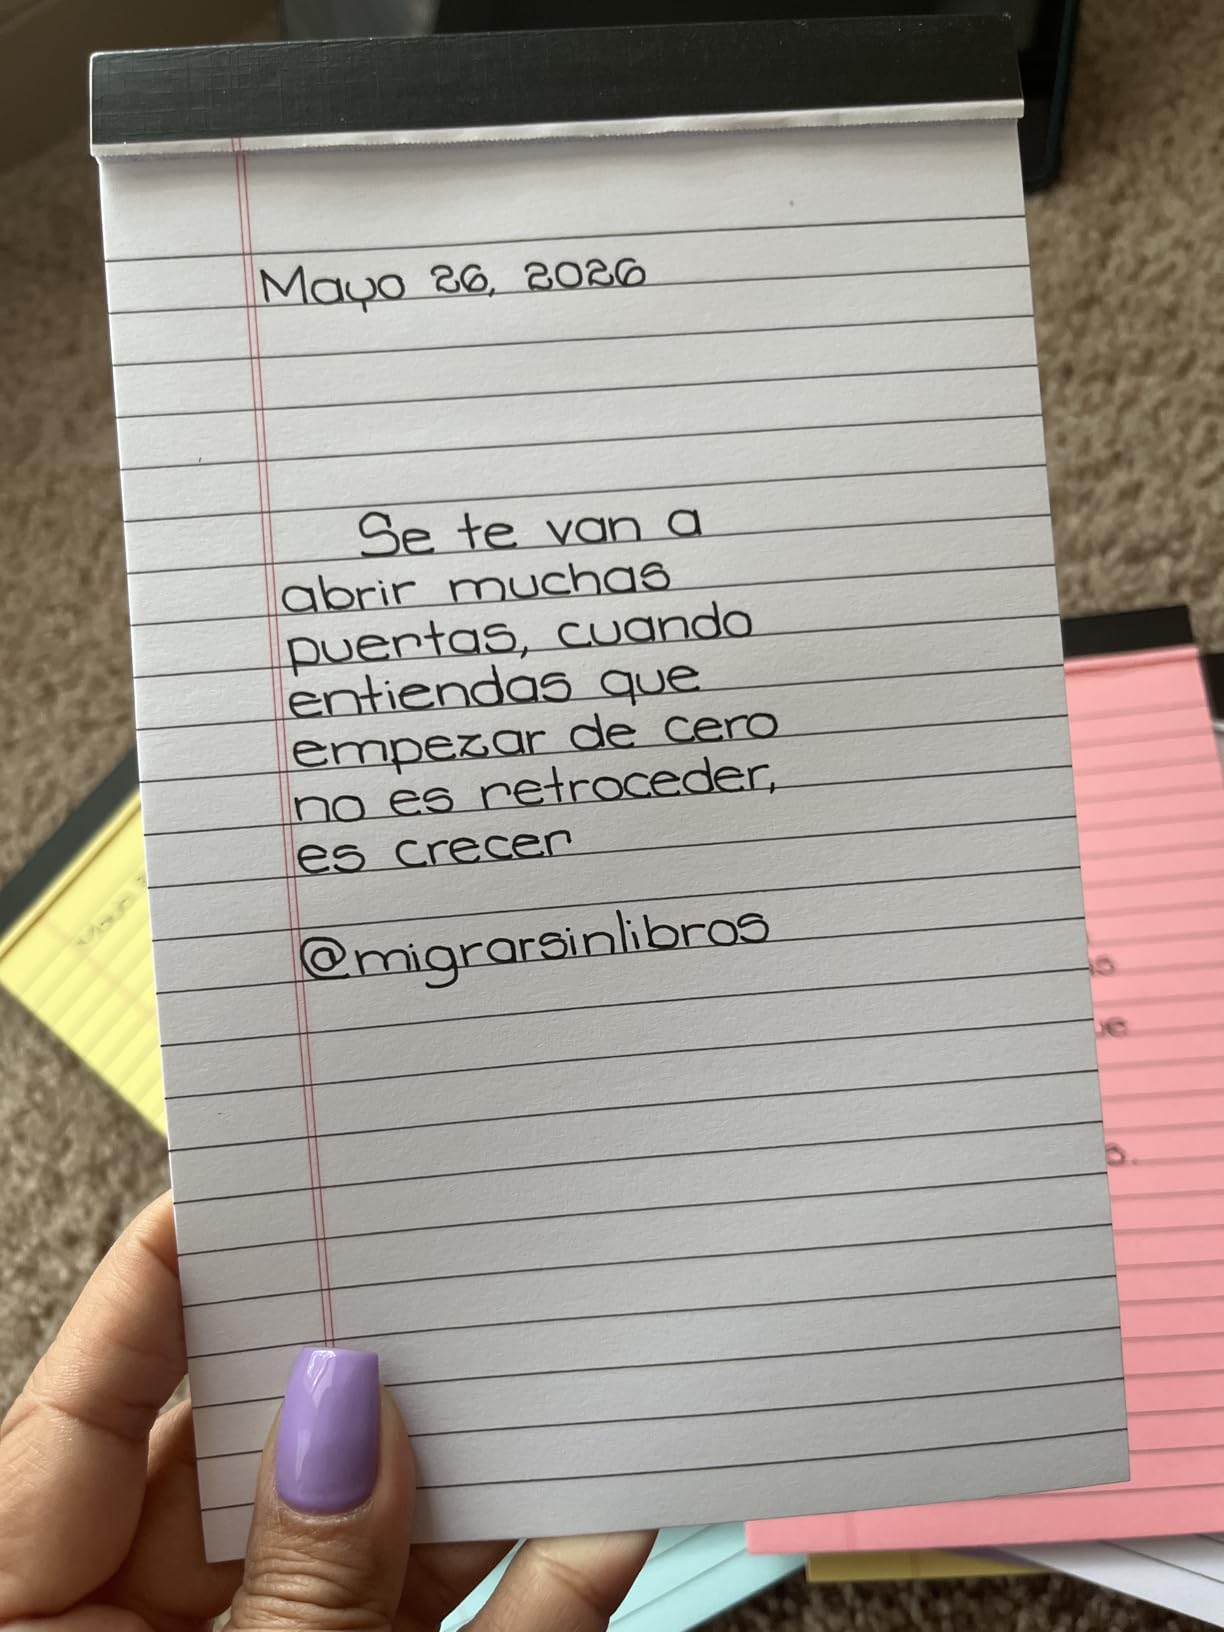 Mayo 26, 2026
Se te van a
abrir muchas
puertas, cuando
entiendas que
empezar de cero
no es retroceder,
es crecer
@migrarsinlibros